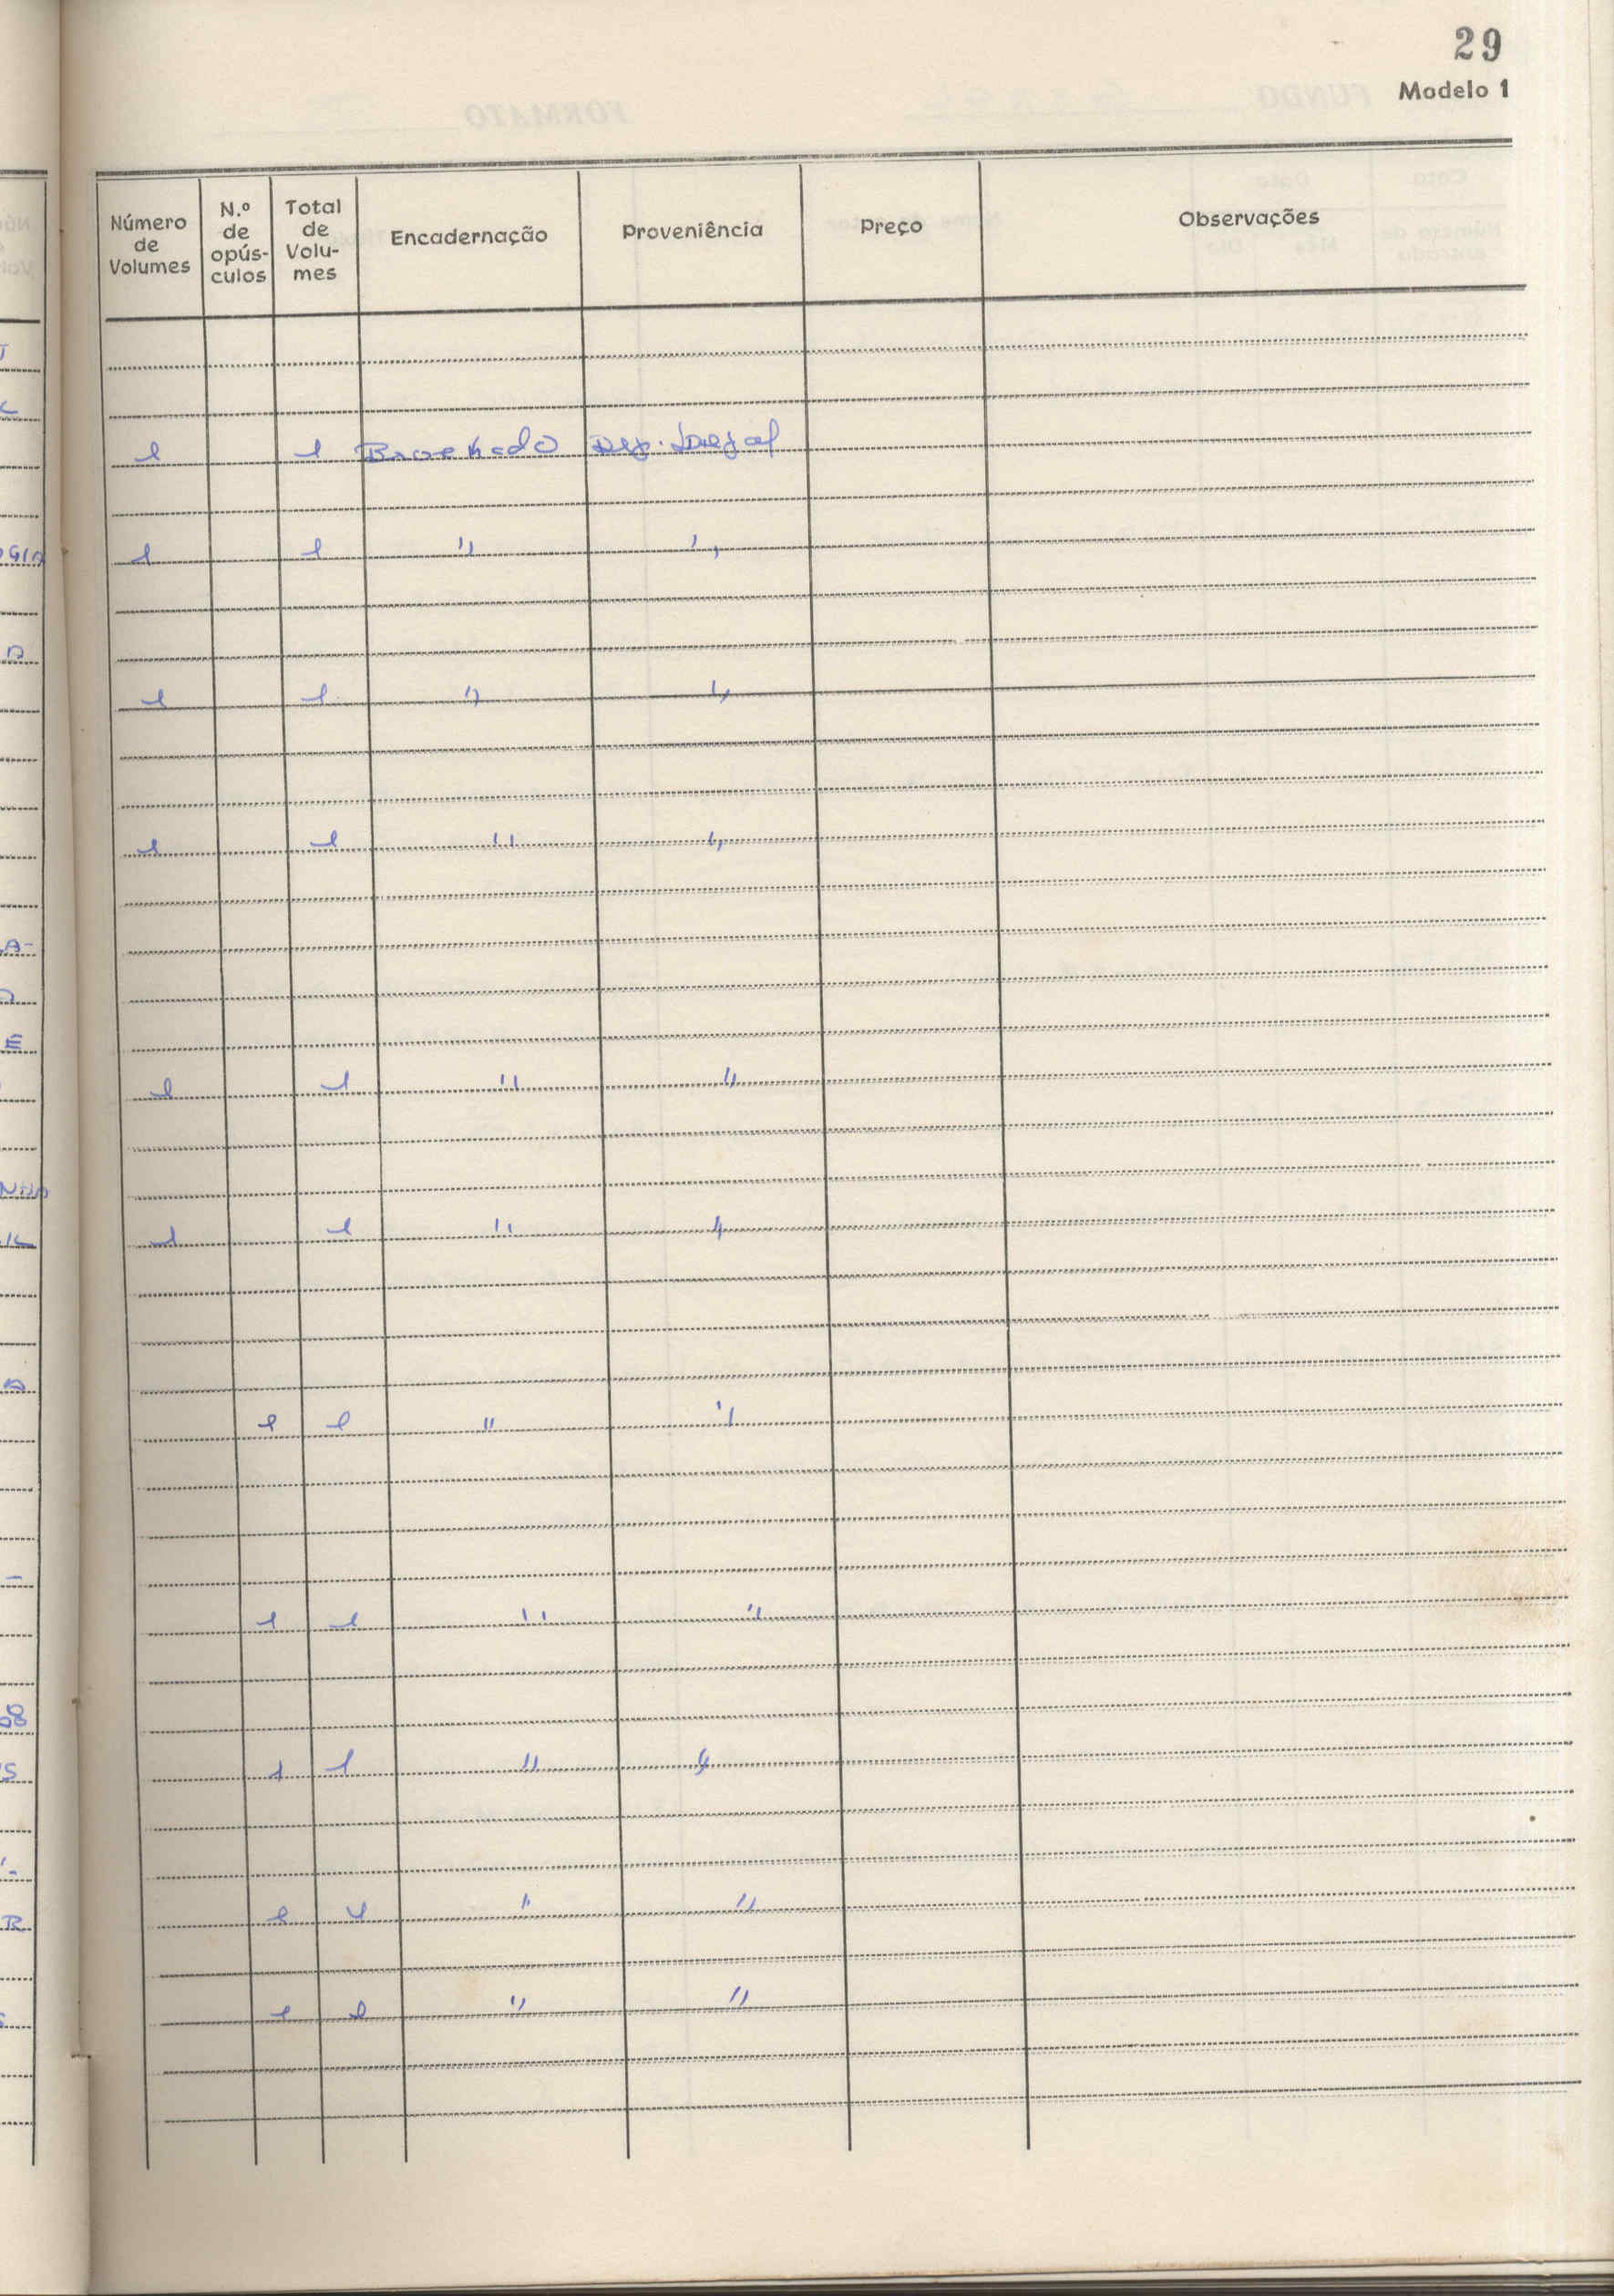 29
Modelo 1
Número de Volumes N.º de opús-culos Total de Volu-mes Encadernação Proveniência Preço Observações
1 1 Brochado Dep. Legal
1 1 " "
1 1 " "
1 1 " "
1 1 " "
1 1 " "
1 1 " "
1 1 " "
1 1 " "
1 1 " "
1 1 " "